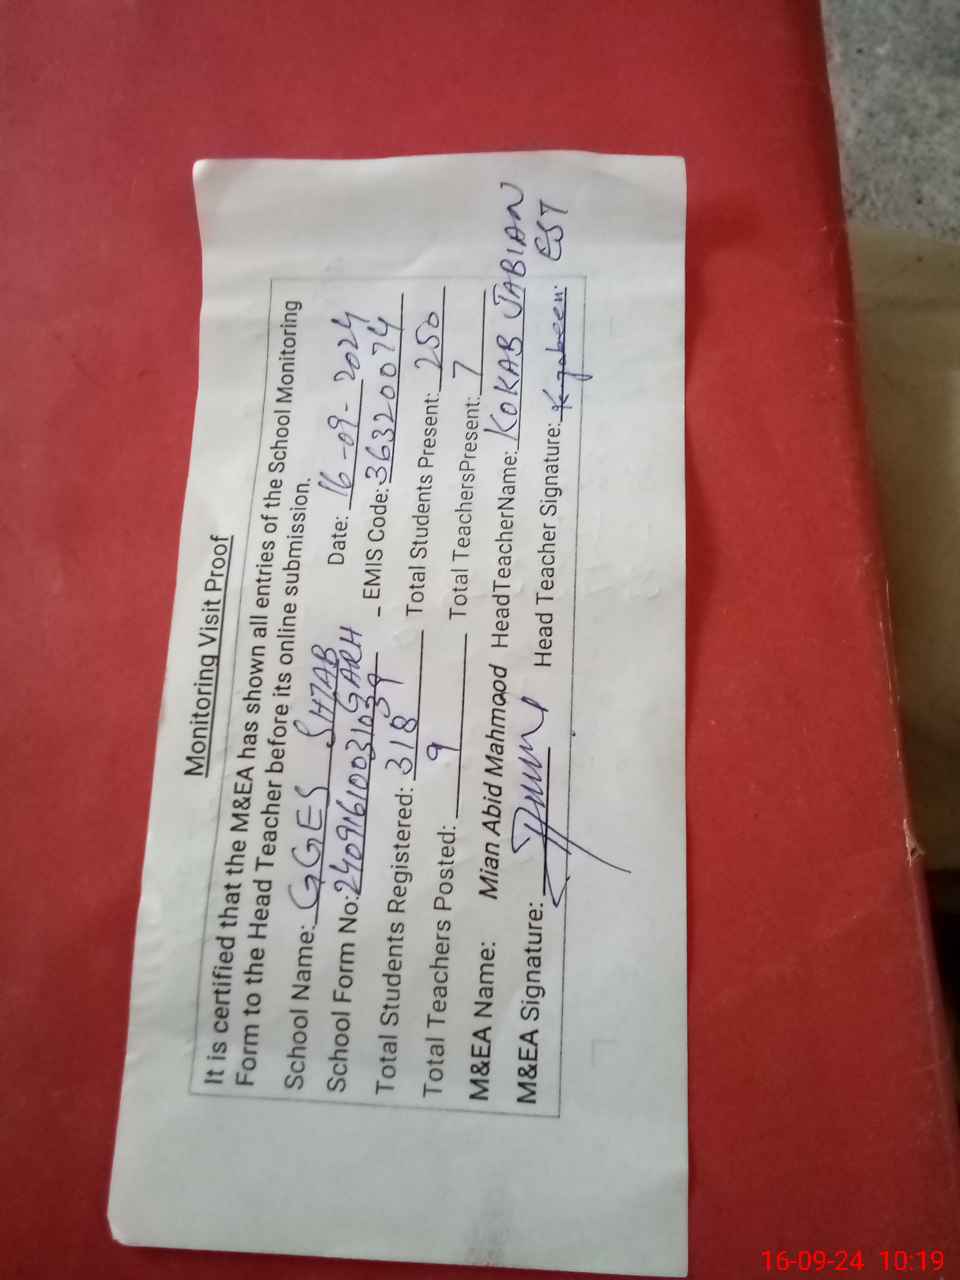 Monitoring Visit Proof
It is certified that the M&EA has shown all entries of the School Monitoring
Form to the Head Teacher before its online submission.
School Name: GGES SHJAB GARH Date: 16-09-2024
School Form No: 24091610031039 - EMIS Code: 36320074
Total Students Registered: 318 Total Students Present: 250
Total Teachers Posted: 9 Total TeachersPresent: 7
M&EA Name: Mian Abid Mahmood HeadTeacherName: KOKAB JABIAN
M&EA Signature: Head Teacher Signature: K-jabeen. EST
16-09-24 10:19